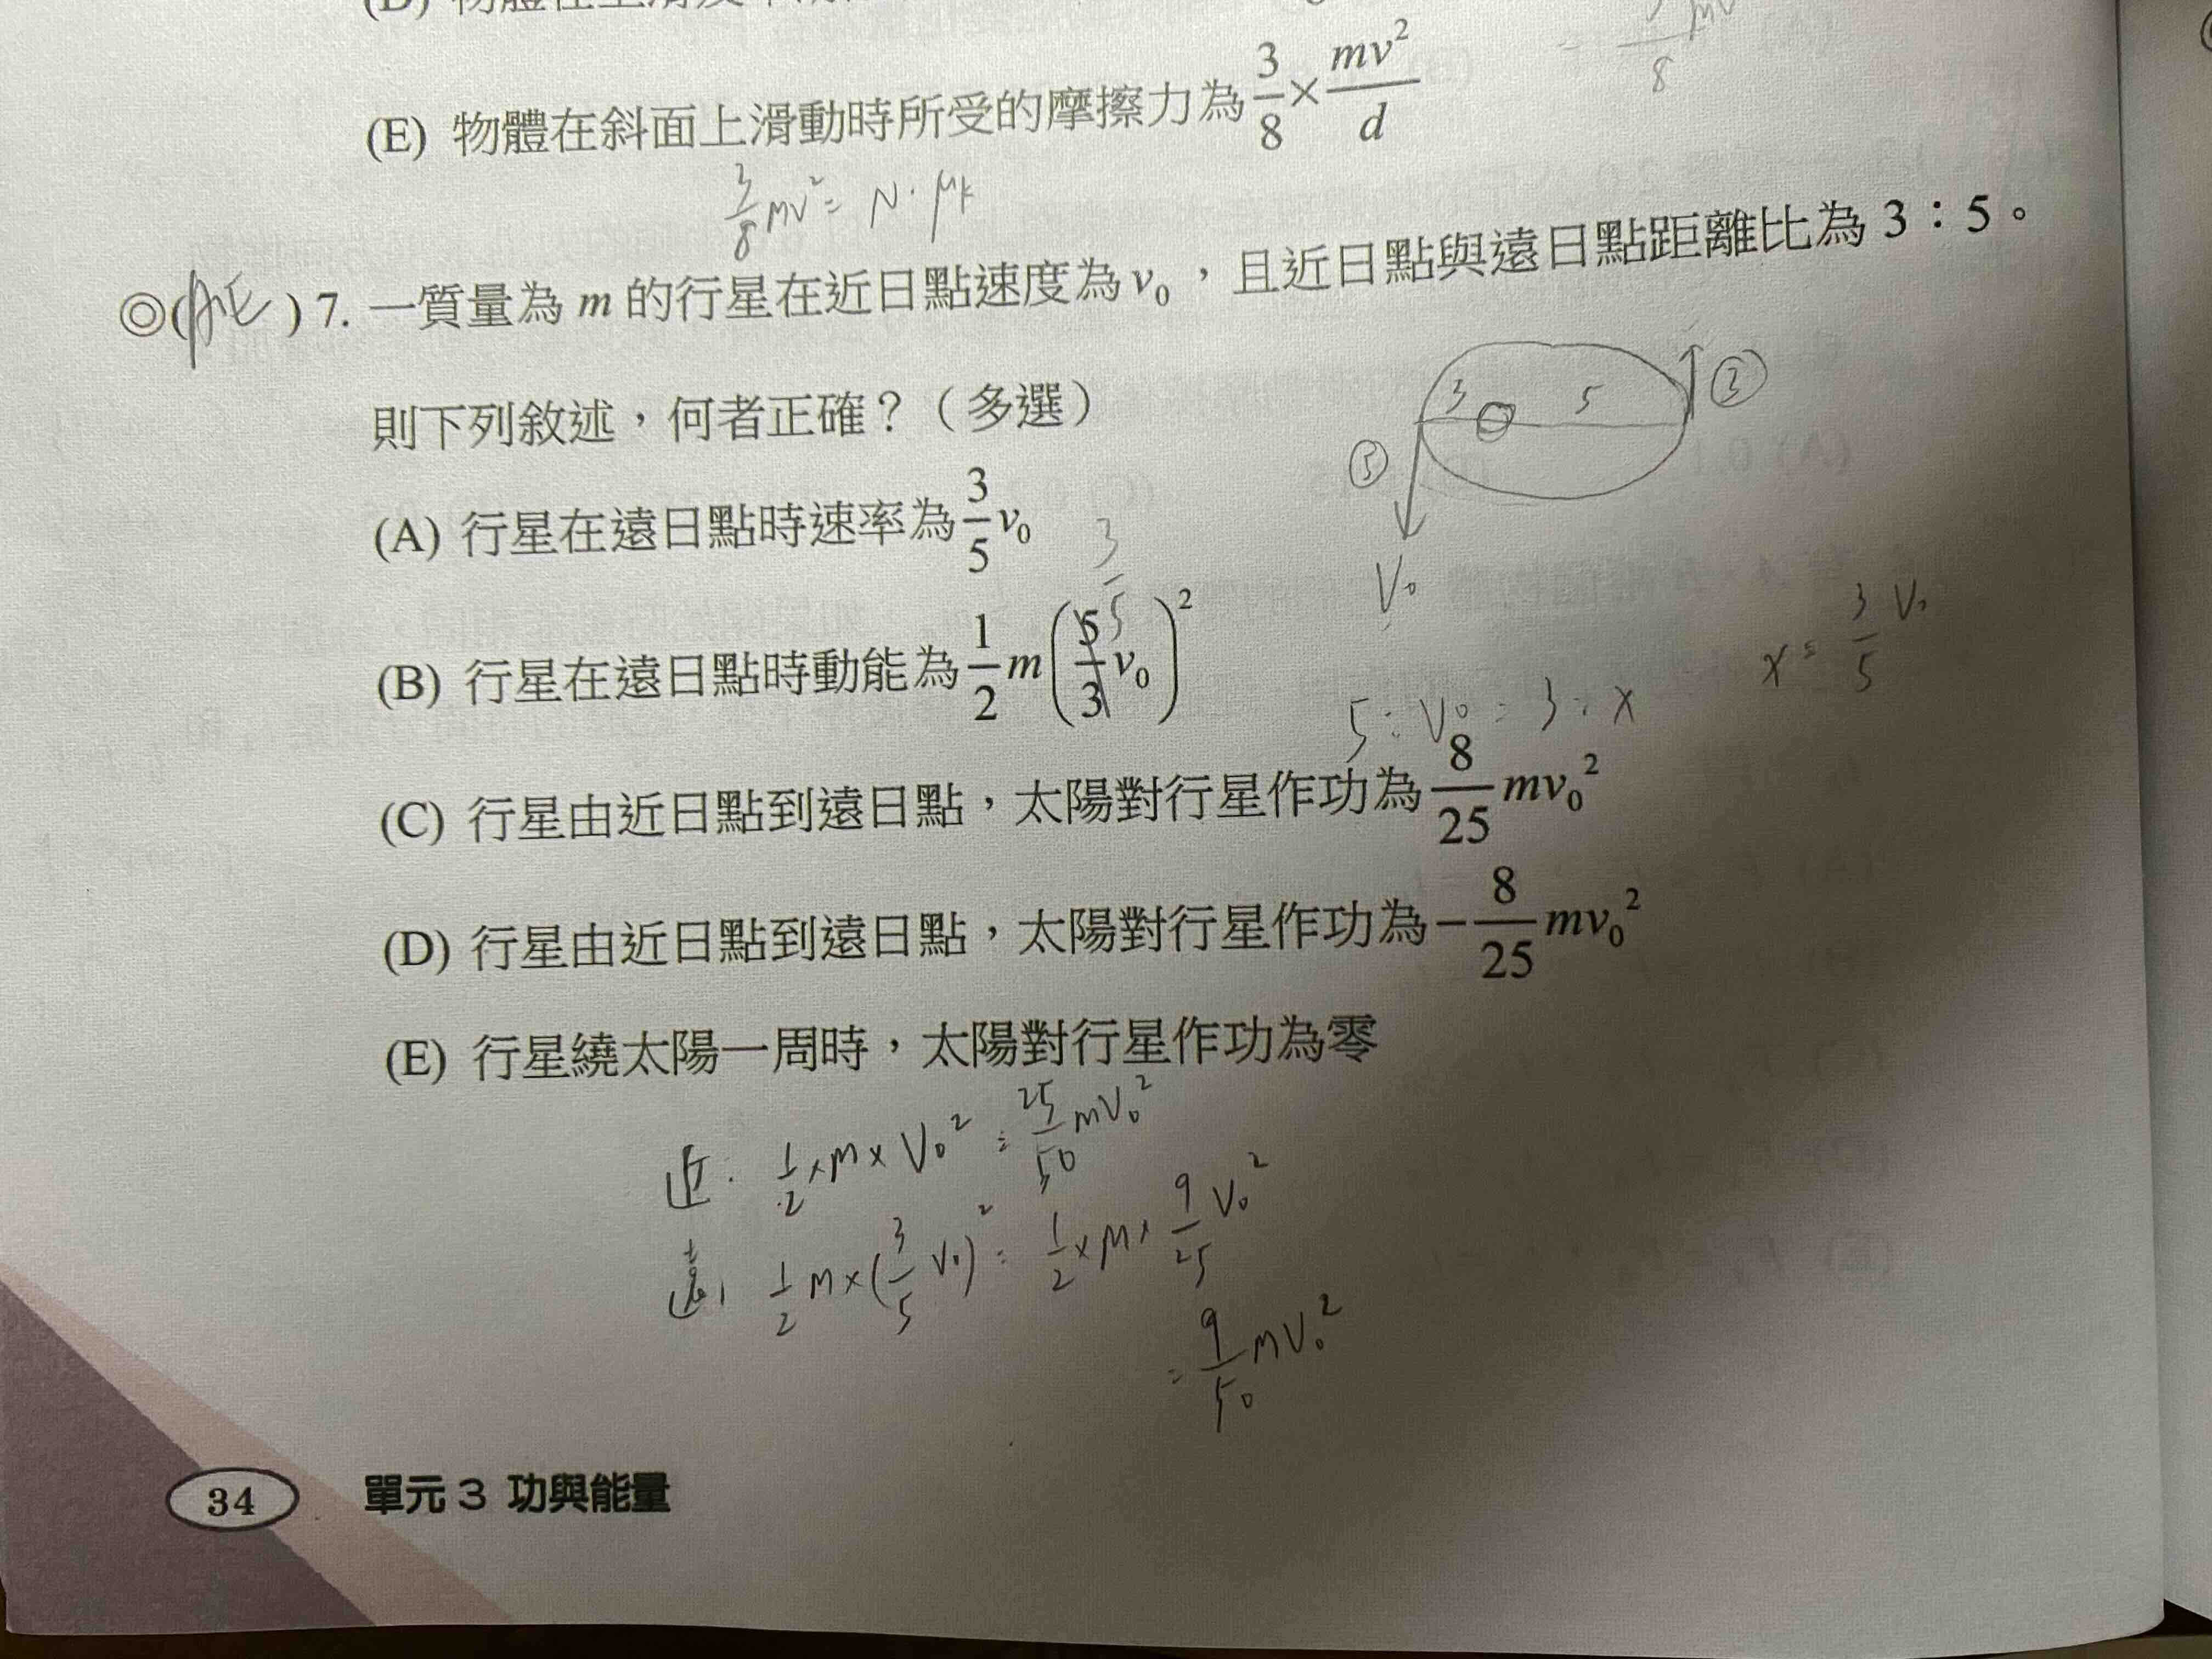 (E) 物體在斜面上滑動時所受的摩擦力為 3/8 × mv²/d
3/8 mv² = N · μk
◎(AE) 7. 一質量為 m 的行星在近日點速度為 v₀，且近日點與遠日點距離比為 3：5。
3 5 ③
則下列敘述，何者正確？（多選）
⑤
V₀
(A) 行星在遠日點時速率為 3/5 v₀
3/5
(B) 行星在遠日點時動能為 1/2 m(5/3 v₀)²
5 : V₀ = 3 : x
x = 3/5 V₀
(C) 行星由近日點到遠日點，太陽對行星作功為 8/25 mv₀²
(D) 行星由近日點到遠日點，太陽對行星作功為 −8/25 mv₀²
(E) 行星繞太陽一周時，太陽對行星作功為零
近: 1/2 × m × V₀² = 25/50 mV₀²
遠: 1/2 m × (3/5 V₀)² = 1/2 × m × 9/25 V₀²
= 9/50 mV₀²
34 單元 3 功與能量